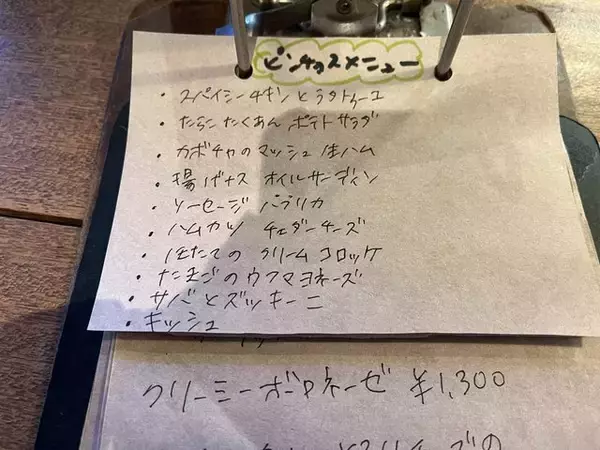 ピンチョスメニュー
・スパイシーチキンとラタトゥーユ
・たらこたくあん ポテトサラダ
・カボチャのマッシュ 生ハム
・揚げナス オイルサーディン
・ソーセージ パプリカ
・ハムカツ チェダーチーズ
・ほたての クリームコロッケ
・たまごのウフマヨネーズ
・サバとズッキーニ
・キッシュ
クリーミーボロネーゼ ¥1,300